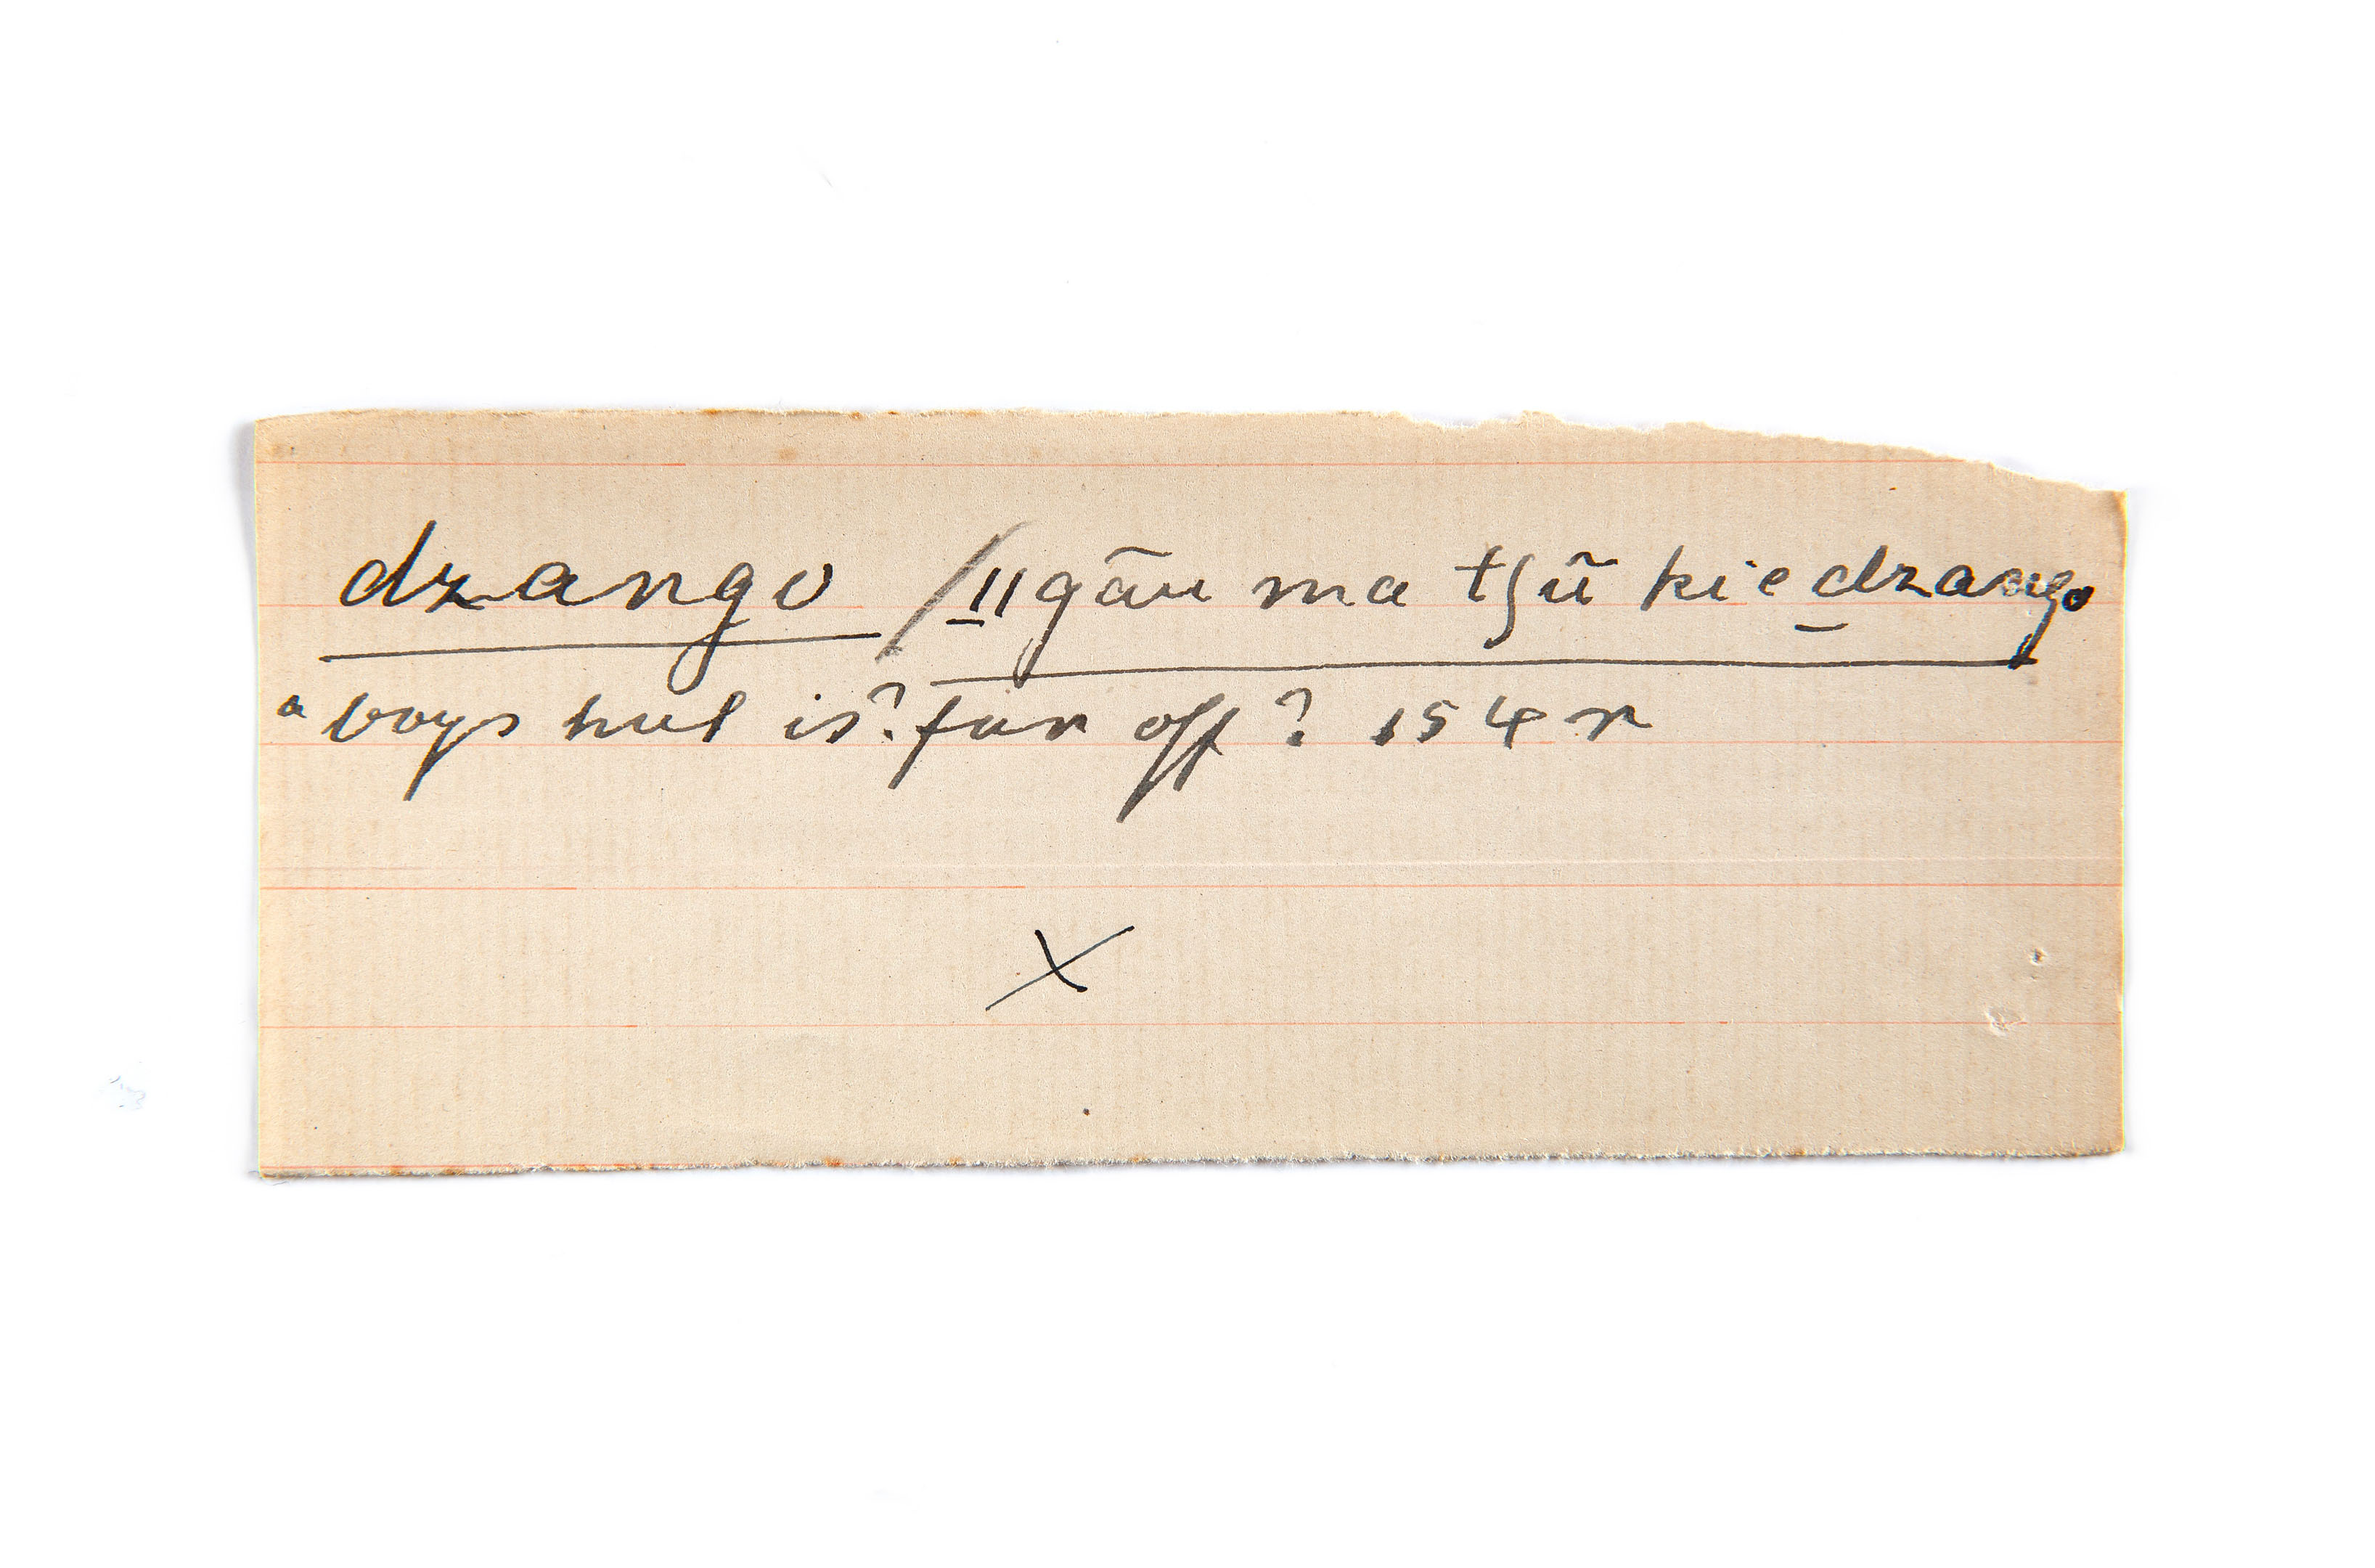 dzango / ǁgāu ma tʃũ kie dzango
a boys hut is? far off? 154 r
X